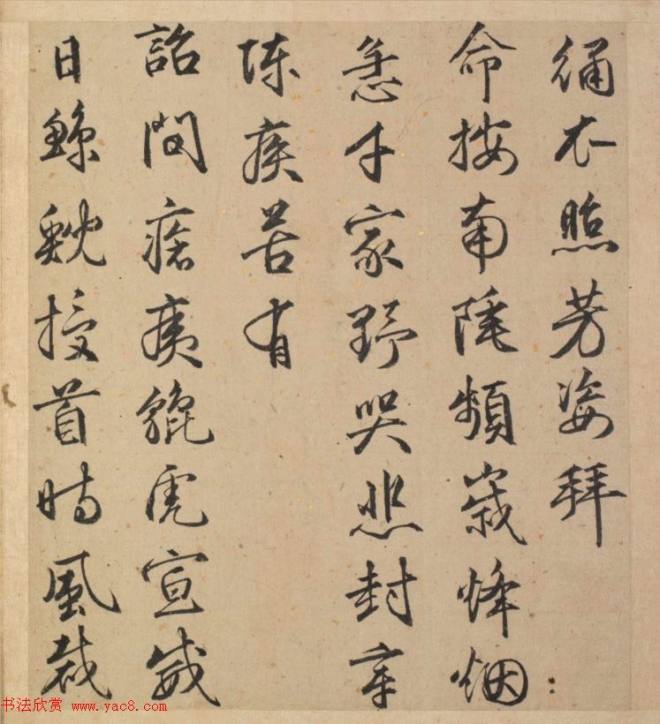 繡衣照芳姿拜
命按南陲頻歲烽烟
急千家野哭悲封章
陳疾苦有
詔問瘡痍貔虎宣威
日鯨鯢授首時風裁
书法欣赏 www.yac8.com